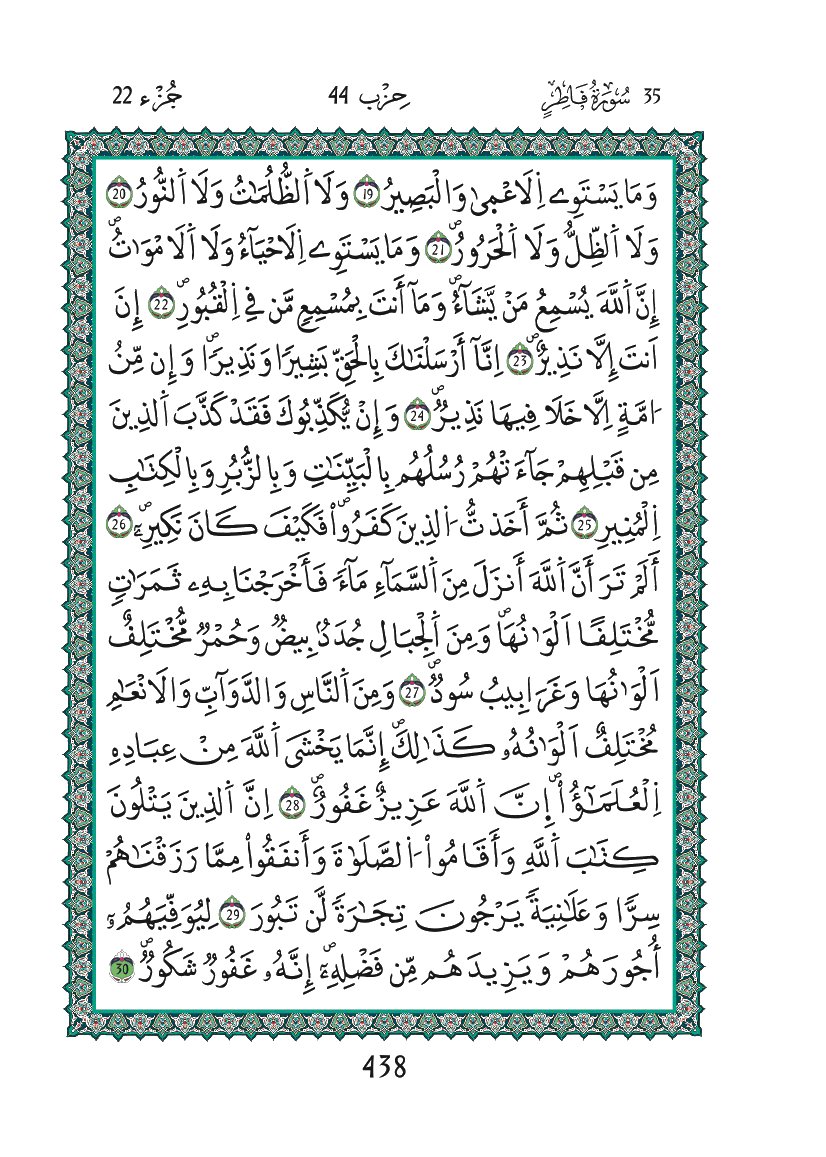 35 سُورَةُ فَاطِرٍ حِزْب 44 جُزْء 22
وَمَا يَسْتَوِے اِ۬لَاعْم۪ىٰ وَالْبَصِيرُ 19 وَلَا اَ۬لظُّلُمَٰتُ وَلَا اَ۬لنُّورُ 20
وَلَا اَ۬لظِّلُّ وَلَا اَ۬لْحَرُورُۖ 21 وَمَا يَسْتَوِے اِ۬لَاحْيَآءُ وَلَا اَ۬لَامْوَٰتُۖ
إِنَّ اَ۬للَّهَ يُسْمِعُ مَنْ يَّشَآءُۖ وَمَآ أَنتَ بِمُسْمِعٍ مَّن فِے اِ۬لْقُبُورِۖ 22 إِنَ
اَنتَ إِلَّا نَذِيرٌۖ 23 اِنَّآ أَرْسَلْنَٰكَ بِالْحَقِّ بَشِيرًا وَنَذِيرًاۖ وَإِن مِّنُ
ا۟مَّةٍ اِلَّا خَلَا فِيهَا نَذِيرٌۖ 24 وَإِنْ يُّكَذِّبُوكَ فَقَدْ كَذَّبَ اَ۬لذِينَ
مِن قَبْلِهِمْ جَآءَتْهُمْ رُسُلُهُم بِالْبَيِّنَٰتِ وَبِالزُّبُرِ وَبِالْكِتَٰبِ
اِ۬لْمُنِيرِ 25 ثُمَّ أَخَذتُّ اُ۬لذِينَ كَفَرُواْۖ فَكَيْفَ كَانَ نَكِيرِۦٓۖ 26
أَلَمْ تَرَ أَنَّ اَ۬للَّهَ أَنزَلَ مِنَ اَ۬لسَّمَآءِ مَآءً فَأَخْرَجْنَا بِهِۦ ثَمَرَٰتٍ
مُّخْتَلِفًا اَلْوَٰنُهَاۖ وَمِنَ اَ۬لْجِبَالِ جُدَدُۢ بِيضٌ وَحُمْرٌ مُّخْتَلِفٌ
اَلْوَٰنُهَا وَغَرَابِيبُ سُودٌۖ 27 وَمِنَ اَ۬لنَّاسِ وَالدَّوَآبِّ وَالَانْعَٰمِ
مُخْتَلِفٌ اَلْوَٰنُهُۥ كَذَٰلِكَۖ إِنَّمَا يَخْشَى اَ۬للَّهَ مِنْ عِبَادِهِ
اِ۬لْعُلَمَٰٓؤُاْۖ إِنَّ اَ۬للَّهَ عَزِيزٌ غَفُورٌۖ 28 اِنَّ اَ۬لذِينَ يَتْلُونَ
كِتَٰبَ اَ۬للَّهِ وَأَقَامُواْ اُ۬لصَّلَوٰةَ وَأَنفَقُواْ مِمَّا رَزَقْنَٰهُمْ
سِرًّا وَعَلَٰنِيَةً يَرْجُونَ تِجَٰرَةً لَّن تَبُورَ 29 لِيُوَفِّيَهُمُۥٓ
أُجُورَهُمْ وَيَزِيدَهُم مِّن فَضْلِهِۦٓۖ إِنَّهُۥ غَفُورٌ شَكُورٌۖ 30
438